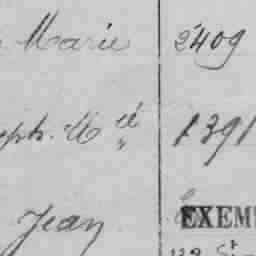 Marie 2409
eph. Mel " 1391
Jean EXEM